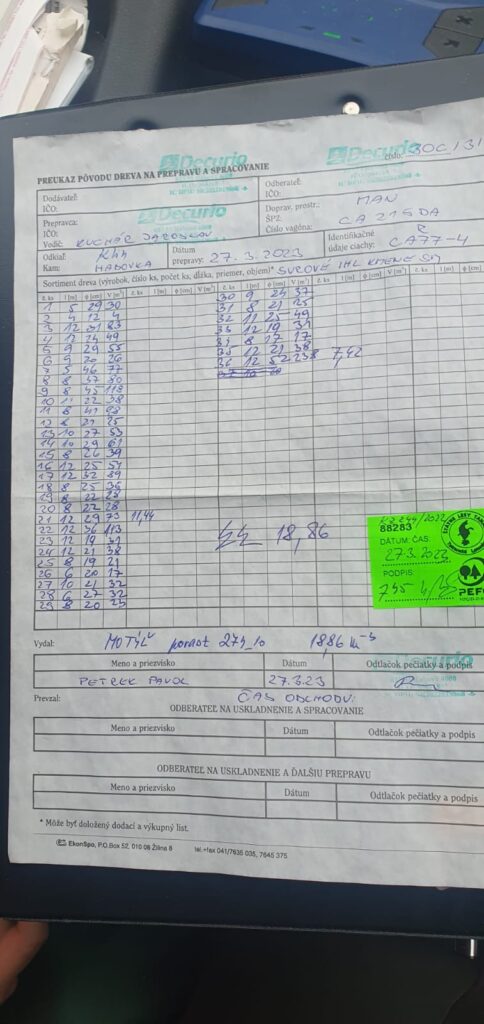 Decurio Decurio
číslo: 30C/31
PREUKAZ PÔVODU DREVA NA PREPRAVU A SPRACOVANIE
Dodávateľ:
IČO:
Odberateľ:
IČO:
Prepravca:
IČO:
Decurio
Vodič: KUCHÁR JAROSLAV
Doprav. prostr.: MAN
ŠPZ:
Číslo vagóna: CA215DA
Odkiaľ:
Kam: HABOVKA
Dátum
prepravy: 27.3.2023
Identifikačné
údaje ciachy: CA77-4
Sortiment dreva (výrobok, číslo ks, počet ks, dĺžka, priemer, objem)* SUROVÉ IHL KMENE SM
č. ks l [m] φ [cm] V [m³] č. ks l [m] φ [cm] V [m³] č. ks l [m] φ [cm] V [m³]
1 5 29 30
2 4 12 4
3 12 31 83
4 12 24 49
5 9 29 55
6 9 20 26
7 5 46 77
8 8 37 80
9 8 45 118
10 11 22 38
11 8 41 98
12 8 21 25
13 10 27 53
14 10 29 61
15 8 26 39
16 12 25 54
17 12 32 89
18 8 25 36
19 8 22 28
20 8 22 28
21 12 29 73 11,44
22 12 36 113
23 12 19 31
24 12 21 38
25 8 19 21
26 6 20 17
27 10 21 32
28 6 27 32
29 8 20 23
30 9 24 37
31 8 21 25
32 11 25 49
33 12 19 31
34 8 17 17
35 12 21 38
36 12 52 238 7,42
18,86
88283
DÁTUM: ČAS:
27.3.2023
PODPIS:
PEFC
Vydal: MOTÝĽ porast 274_10 18,86 m³
Meno a priezvisko Dátum Odtlačok pečiatky a podpis
PETREK PAVOL 27.3.23
Prevzal: ČAS ODCHODU:
ODBERATEĽ NA USKLADNENIE A SPRACOVANIE
Meno a priezvisko Dátum Odtlačok pečiatky a podpis
ODBERATEĽ NA USKLADNENIE A ĎALŠIU PREPRAVU
Meno a priezvisko Dátum Odtlačok pečiatky a podpis
* Môže byť doložený dodací a výkupný list.
EkonSpo, P.O.Box 52, 010 08 Žilina 8 tel.+fax 041/7636 035, 7645 375